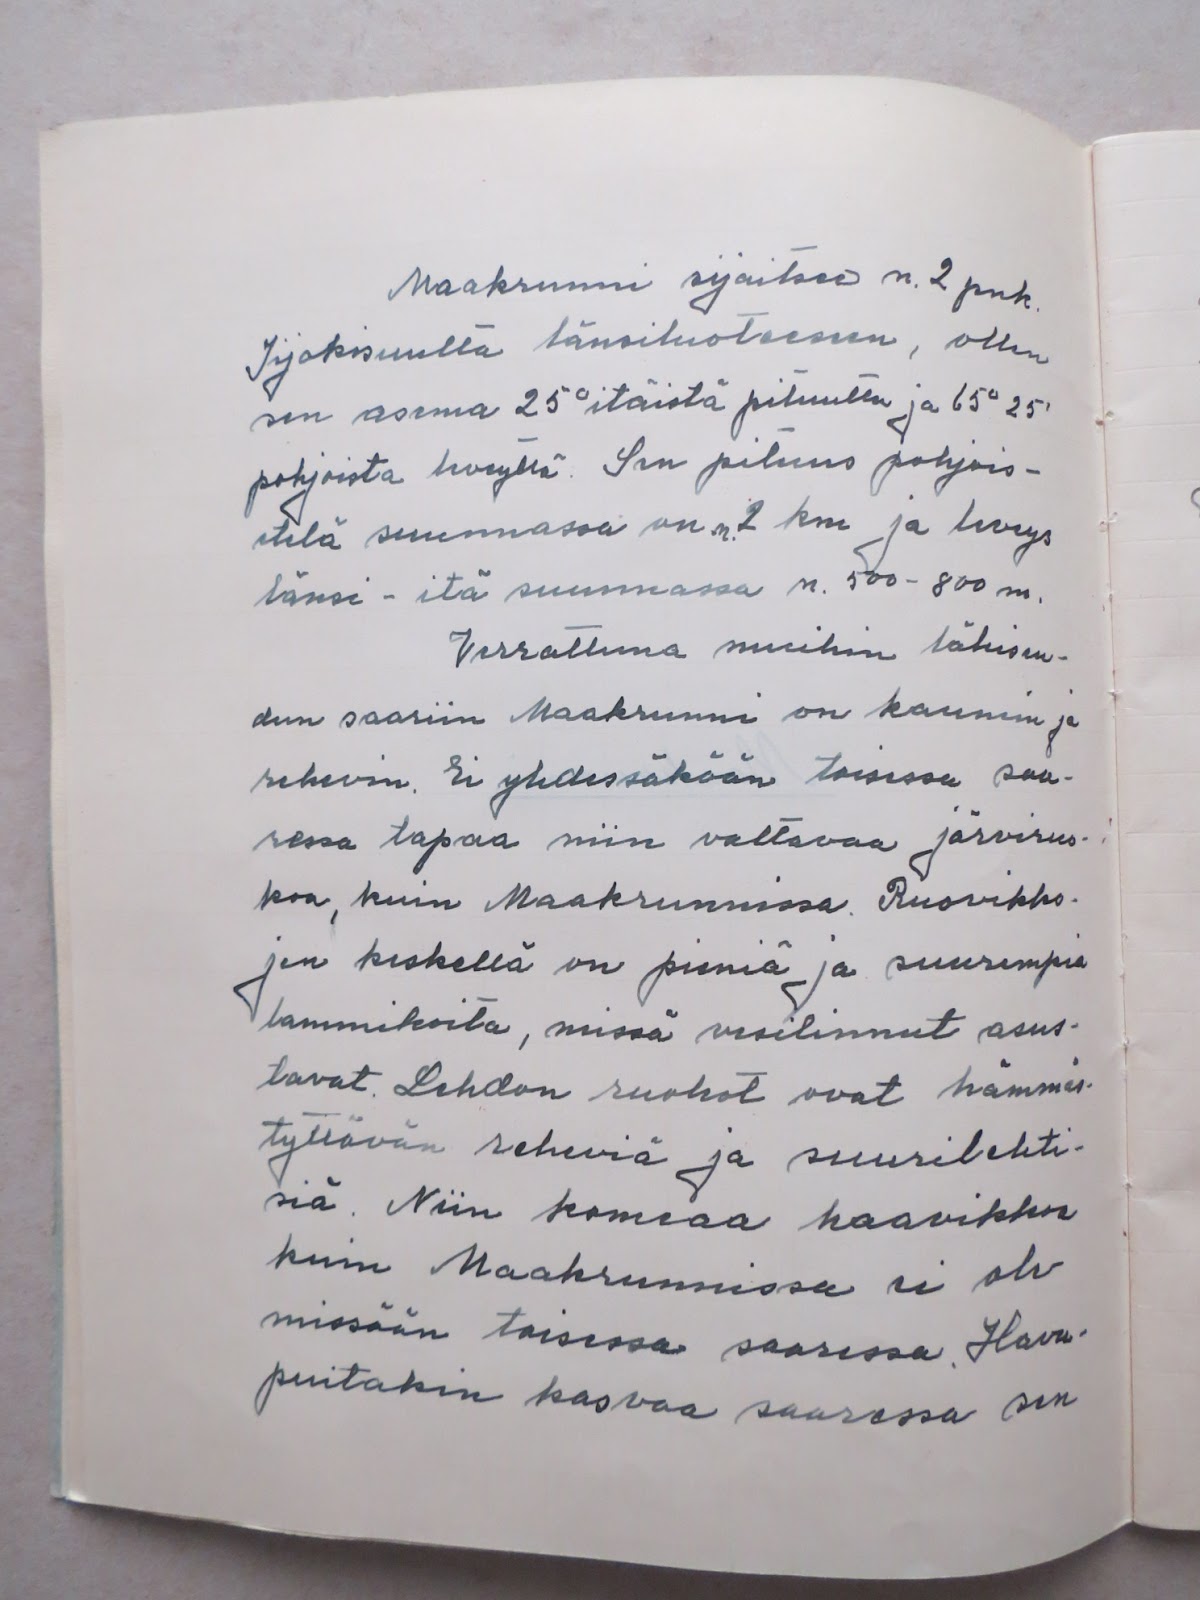 Maakrunni sijaitsee n. 2 pnk.
Iijokisuulta länsiluoteeseen, ollen
sen asema 25° itäistä pituutta ja 65° 25'
pohjoista leveyttä. Sen pituus pohjois-
etelä suunnassa on n. 2 km ja leveys
länsi - itä suunnassa n. 500 - 800 m.
Verrattuna muihin lähiseu-
dun saariin Maakrunni on kaunein ja
rehevin. Ei yhdessäkään toisessa saa-
ressa tapaa niin valtavaa järvirus-
koa, kuin Maakrunnissa. Ruovikko-
jen keskellä on pieniä ja suurempia
lammikoita, missä vesilinnut asus-
tavat. Lehdon ruohot ovat hämmäs-
tyttävän reheviä ja suurilehti-
siä. Niin komeaa haavikkoa
kuin Maakrunnissa ei ole
missään toisessa saaressa. Havu-
puitakin kasvaa saaressa sen